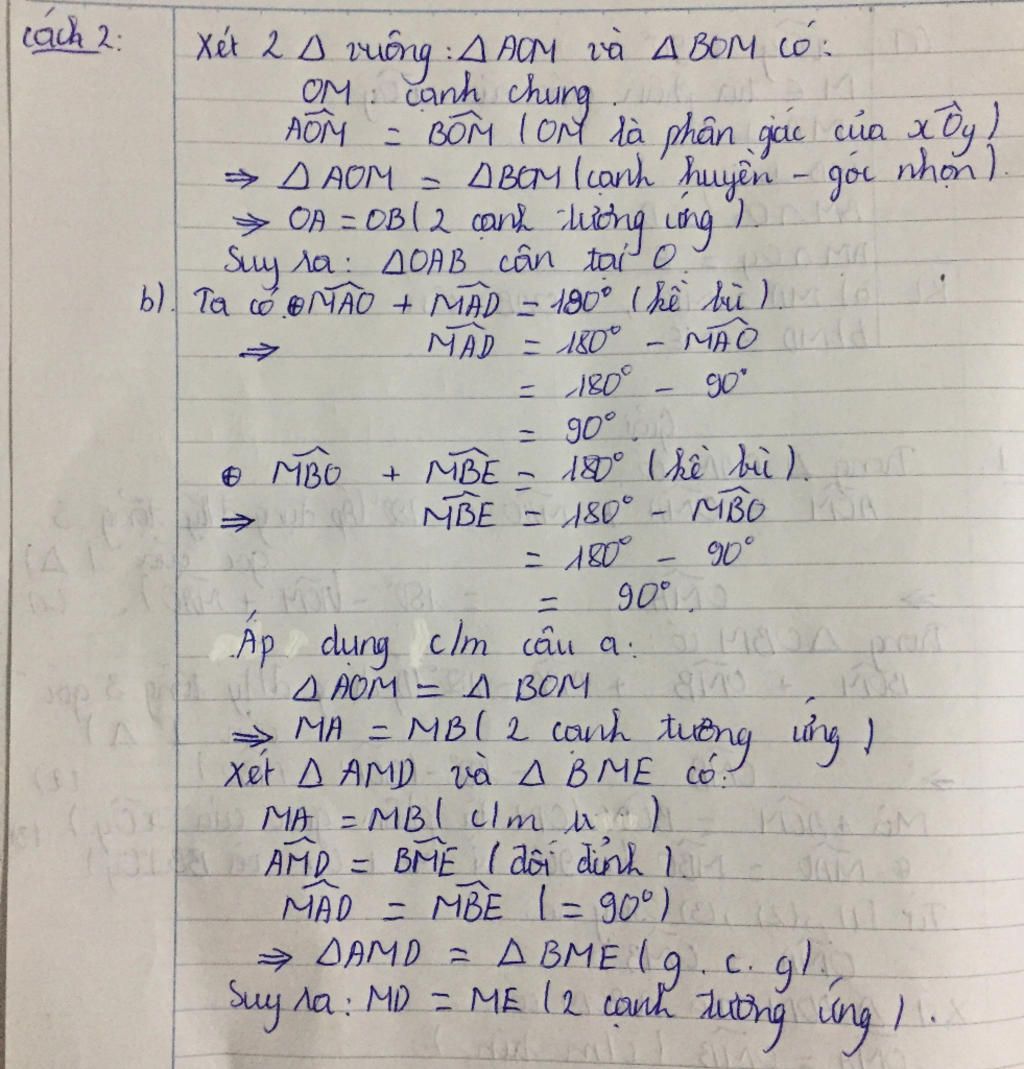 Cách 2:
Xét 2 Δ vuông: ΔAOM và ΔBOM có:
OM: cạnh chung.
AÔM = BÔM (OM là phân giác của xÔy)
⇒ ΔAOM = ΔBOM (cạnh huyền - góc nhọn).
⇒ OA = OB (2 cạnh tương ứng).
Suy ra: ΔOAB cân tại O.
b). Ta có ⊕ MÂO + MÂD = 180° (kề bù).
⇒ MÂD = 180° - MÂO
= 180° - 90°
= 90°.
⊕ MB̂O + MB̂E = 180° (kề bù).
⇒ MB̂E = 180° - MB̂O
= 180° - 90°
= 90°.
Áp dụng c/m câu a:
ΔAOM = ΔBOM
⇒ MA = MB (2 cạnh tương ứng)
Xét ΔAMD và ΔBME có:
MA = MB (c/m )
AM̂D = BM̂E (đối đỉnh)
MÂD = MB̂E (= 90°)
⇒ ΔAMD = ΔBME (g.c.g).
Suy ra: MD = ME (2 cạnh tương ứng).